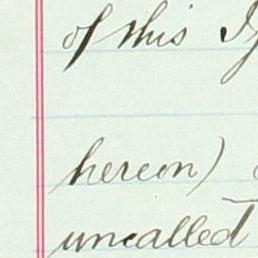 of this
hereon)
uncalled